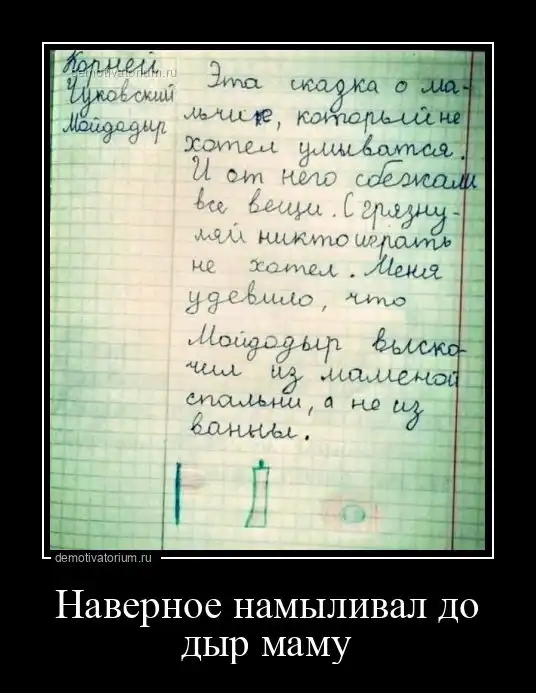 Корней
Чуковский
Мойдодыр
demotivatorium.ru
Эта сказка о ма-
льчике, который не
хотел умыватся.
И от него сбежали
все вещи. С грязну-
лей никто играть
не хотел. Меня
удевило, что
Мойдодыр выско-
чил из маменой
спальни, а не из
ванны.
demotivatorium.ru
Наверное намыливал до
дыр маму